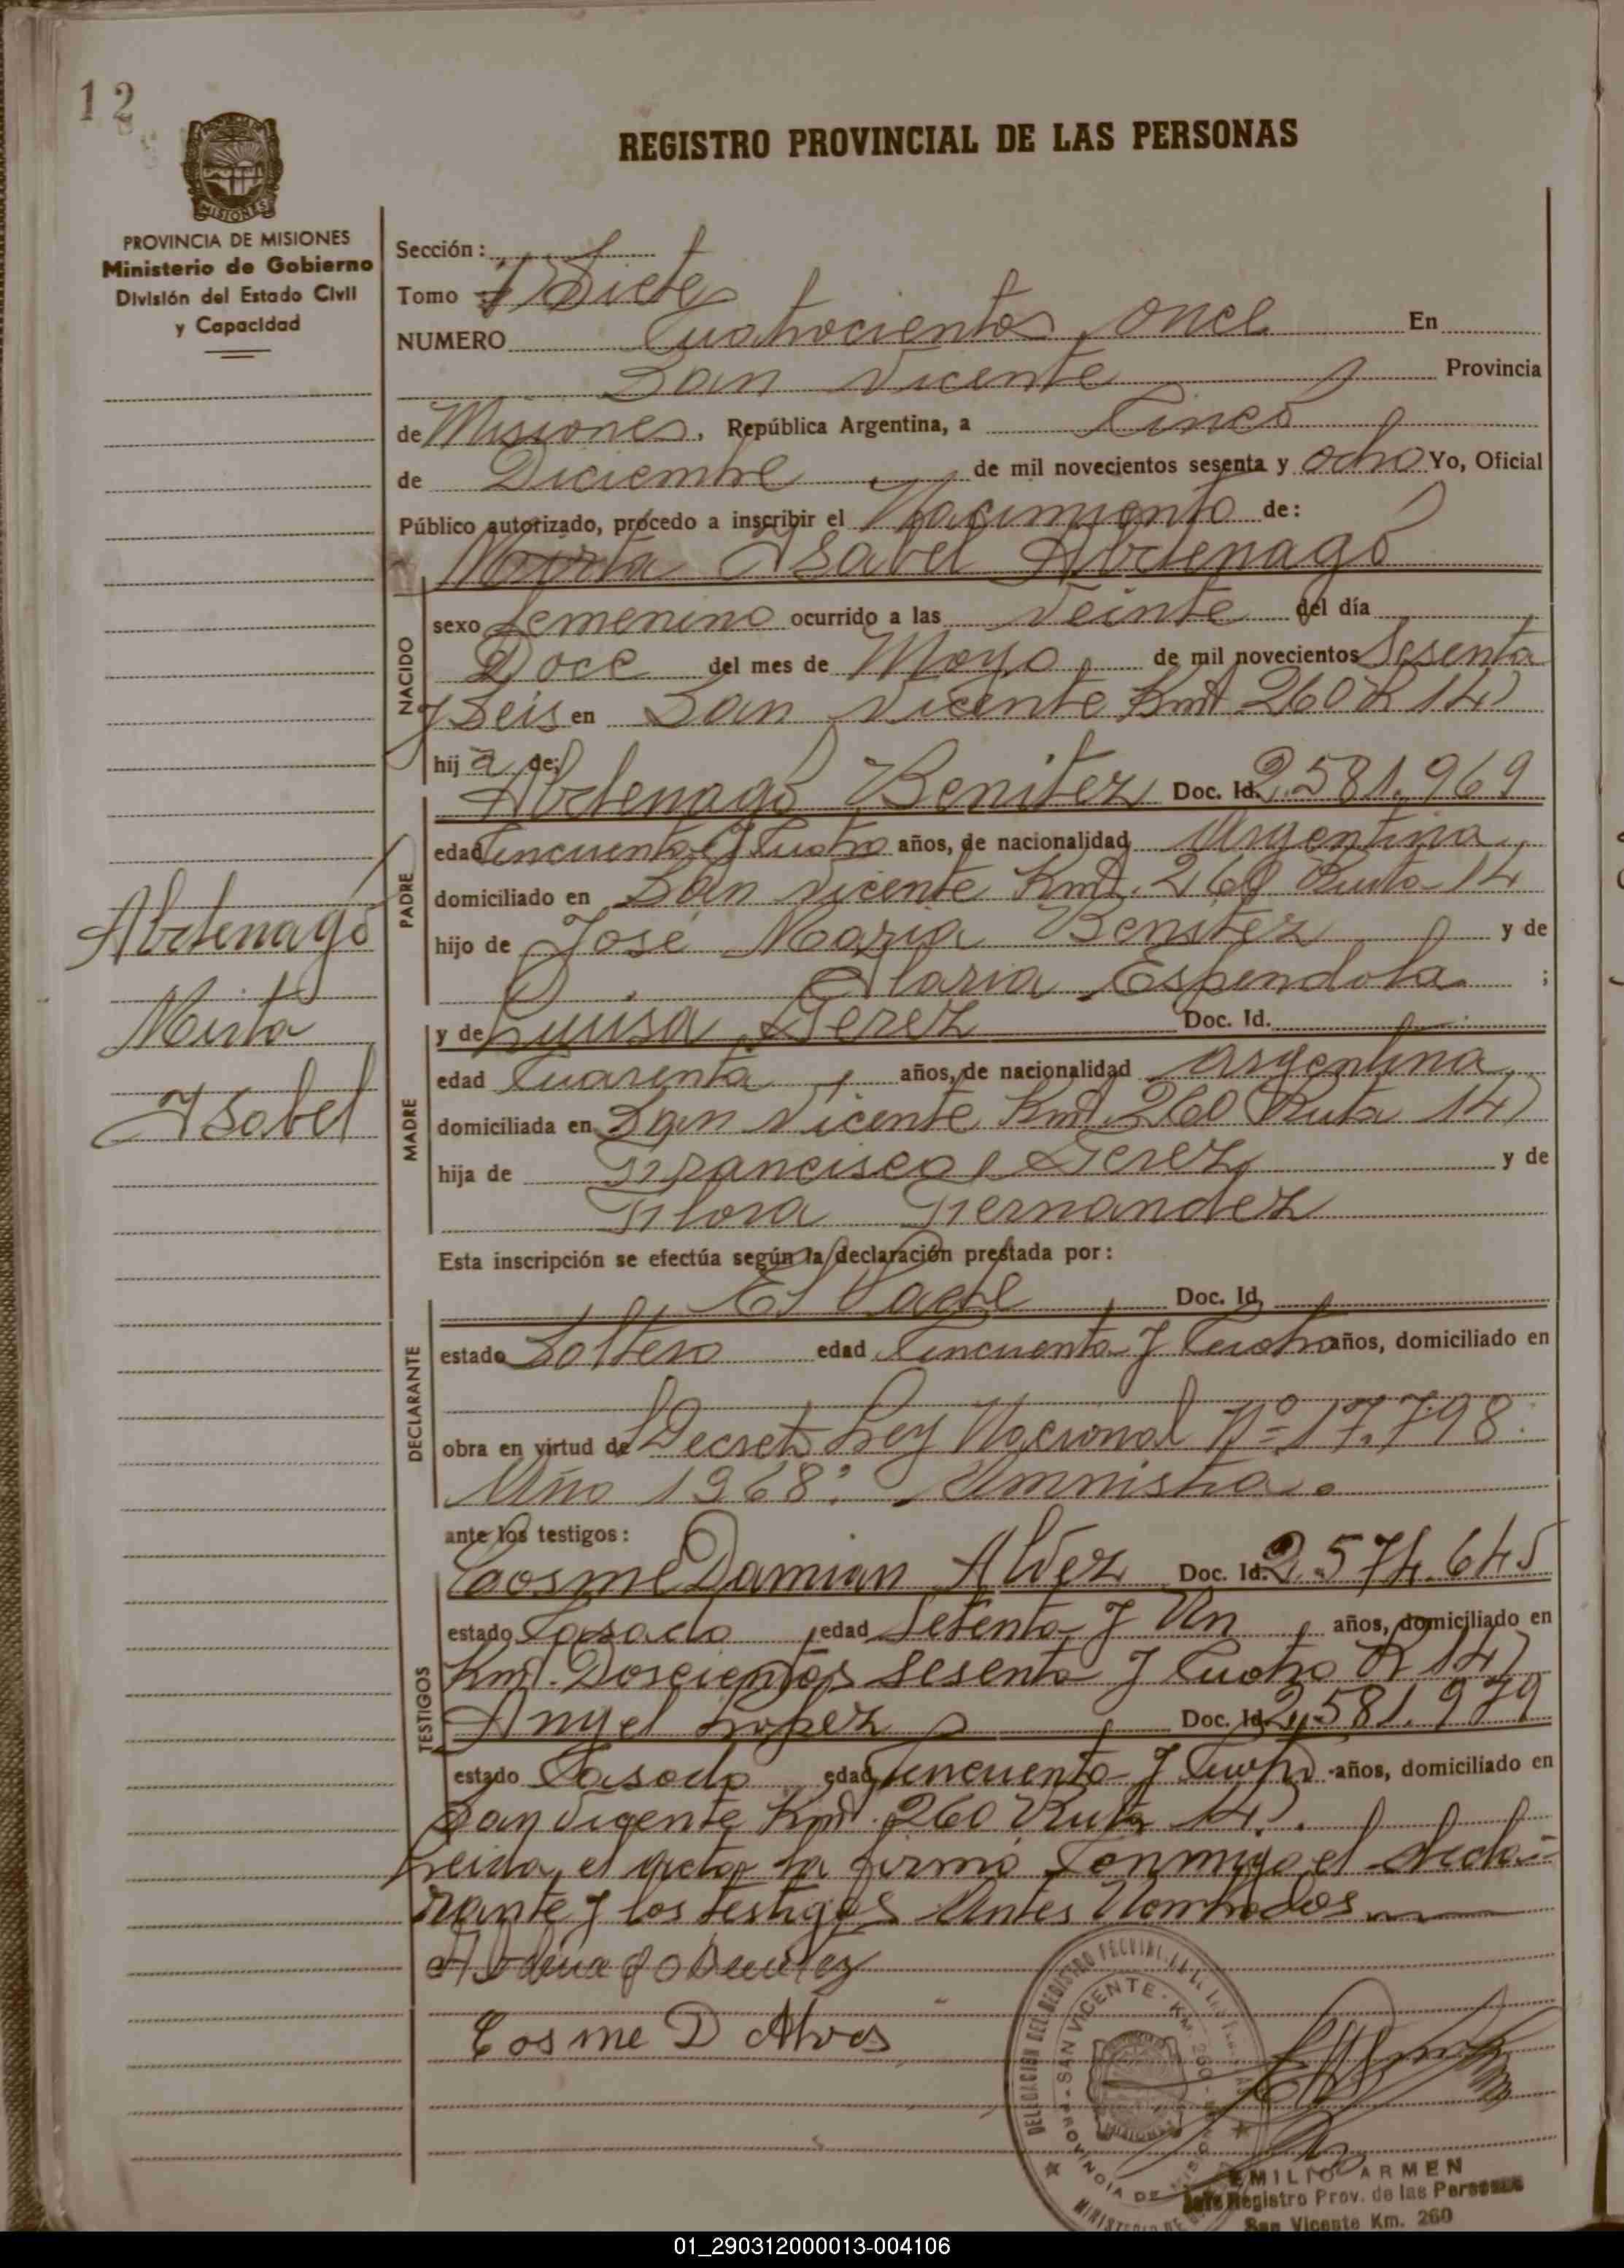 12
REGISTRO PROVINCIAL DE LAS PERSONAS
PROVINCIA DE MISIONES
Ministerio de Gobierno
División del Estado Civil
y Capacidad
Sección :
Tomo Siete
NUMERO Cuatrocientos once En
San Vicente Provincia
de Misiones, República Argentina, a Cinco
de Diciembre de mil novecientos sesenta y ocho Yo, Oficial
Público autorizado, procedo a inscribir el Nacimiento de:
Mirta Isabel Abdenago
NACIDO
sexo Femenino ocurrido a las veinte del día
Doce del mes de Mayo de mil novecientos Sesenta
y Seis en San Vicente Kmt 260 R 14
hija de:
Abdenago Benitez Doc. Id. 2.581.969
PADRE
edad Cincuenta y Cuatro años, de nacionalidad Argentina
domiciliado en San Vicente Kmt. 260 Ruta 14
hijo de José Maria Benitez y de
Espendola ;
Abdenagó
Mirta
Isabel
MADRE
y de Luisa Gerez Doc. Id.
edad Cuarenta años, de nacionalidad Argentina
domiciliada en San Vicente Kmt. 260 Ruta 14
hija de Francisco Gerez y de
Flora Fernandez
Esta inscripción se efectúa según la declaración prestada por:
El Padre Doc. Id.
DECLARANTE
estado Soltero edad Cincuenta y Cuatro años, domiciliado en
obra en virtud de Decreto Ley Nacional Nº 17.798.
Año 1968. Amnistia.
ante los testigos:
TESTIGOS
Cosme Damian Alvez Doc. Id. 2.574.645
estado Casado edad Setenta y Un años, domiciliado en
Kmt. Doscientos Sesenta y Cuatro R 14
Angel Lopez Doc. Id. 2.581.979
estado Casado edad Cincuenta y Cuatro años, domiciliado en
San Vicente Kmt. 260 Ruta 14.
Leida, el acta la firma Conmigo el decla-
rante y los testigos Antes Nombrados
Abdenago Benitez
Cosme D Alves
DELEGACION DEL REGISTRO PROVINCIAL DE LAS PERSONAS
SAN VICENTE - Km. 260
PROVINCIA DE MISIONES
EMILIO ARMEN
Jefe Registro Prov. de las Personas
San Vicente Km. 260
01_290312000013-004106